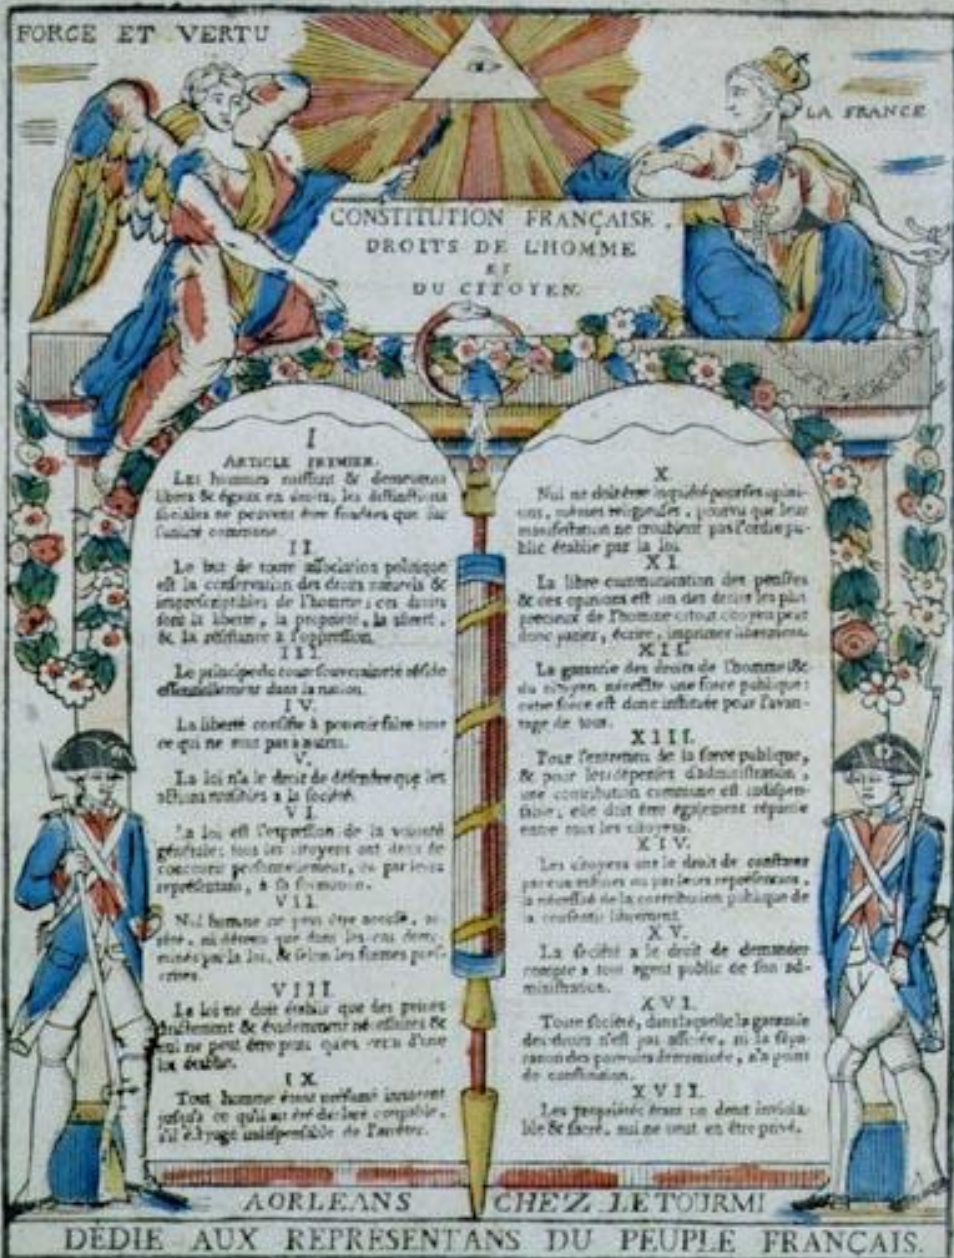 FORCE ET VERTU
LA FRANCE
CONSTITUTION FRANÇAISE.
DROITS DE L'HOMME
ET
DU CITOYEN.
I
ARTICLE PREMIER.
Les hommes naissent & demeurent
libres & égaux en droits, les distinctions
sociales ne peuvent être fondées que sur
l'utilité commune
II
Le but de toute association politique
est la conservation des droits naturels &
imprescriptibles de l'homme: ces droits
sont la liberté, la propriété, la sûreté,
& la résistance à l'oppression.
III.
Le principe de toute souveraineté réside
essentiellement dans la nation.
IV.
La liberté consiste à pouvoir faire tout
ce qui ne nuit pas à autrui.
V.
La loi n'a le droit de défendre que les
actions nuisibles a la société.
VI.
La loi est l'expression de la volonté
générale; tous les citoyens ont droit de
concourir personnellement, ou par leurs
représentans, à sa formation.
VII.
Nul homme ne peut être accusé, ar
rêté, ni détenu que dans les cas déter
minés par la loi, & selon les formes pres-
crites.
VIII.
La loi ne doit établir que des peines
strictement & évidemment nécessaires &
nul ne peut être puni qu'en vertu d'une
loi établie.
IX.
Tout homme étant présumé innocent
jusqu'a ce qu'il ait été déclaré coupable,
s'il est jugé indispensable de l'arrêter.
X
Nul ne doit être inquiété pour ses opini-
ons, mêmes religieuses, pourvu que leur
manifestation ne troublent pas l'ordre pu-
blic établie par la loi
XI.
La libre communication des pensées
& des opinions est un des droits les plus
précieux de l'homme: tout citoyen peut
donc parler, écrire, imprimer librement.
XII.
La garantie des droits de l'homme &
du citoyen nécessite une force publique:
cette force est donc instituée pour l'avan-
tage de tous.
XIII.
Pour l'entretien de la force publique,
& pour les dépenses d'administration,
une contribution commune est indispen-
sable, elle doit être également répartie
entre tous les citoyens.
XIV.
Les citoyens ont le droit de constater
par eux mêmes ou par leurs représentans,
la nécessité de la contribution publique de
la consentir librement.
XV.
La société a le droit de demander
compte a tout agent public de son ad-
ministration.
XVI.
Toute société, dans laquelle la garantie
des droits n'est pas assurée, ni la sépa-
ration des pouvoirs déterminée, n'a point
de constitution.
XVII.
Les propriétés étant un droit inviola-
ble & sacré, nul ne peut en être privé.
A ORLEANS CHEZ LETOURMI
DÉDIE AUX REPRESENTANS DU PEUPLE FRANÇAIS.